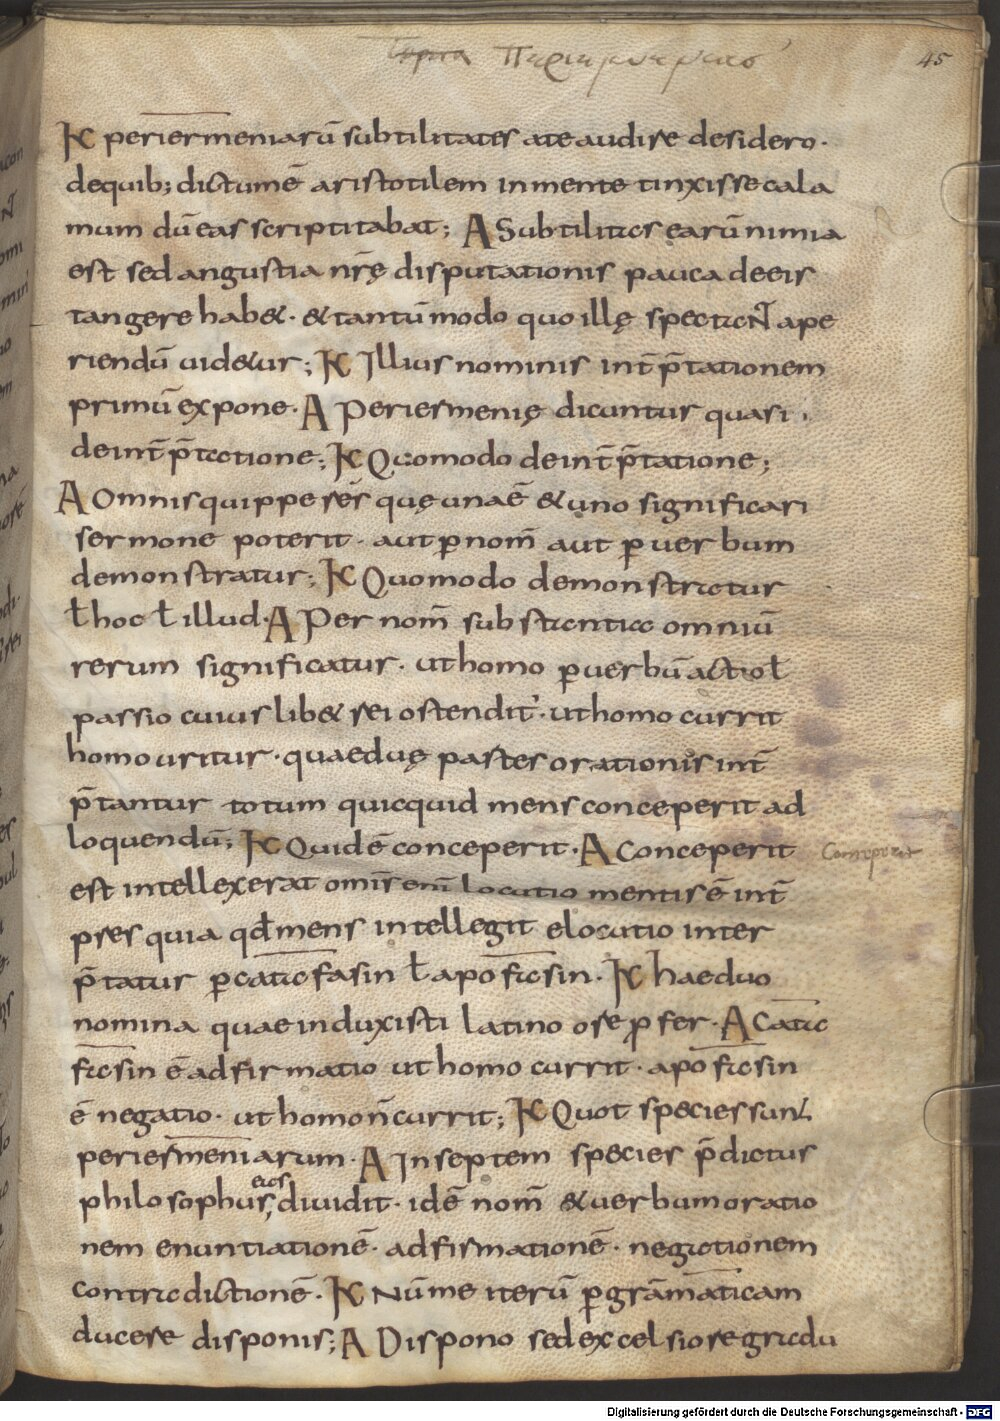 45
K periermeniarū subtilitates ate audire desidero·
dequib; dictumē aristotilem inmente tinxisse cala
mum dū eas scriptitabat; A Subtilitas earū nimia
est sed angustia nr̄ę disputationis pauca de eis
tangere hab&· & tantūmodo quo illę spectant ape
riendū uidetur; K Illius nominis int̄p̄tationem
primū expone· A Periermenię dicuntur quasi
deint̄p̄tatione; K Quomodo deint̄p̄tatione;
A Omnis quippe res quę una ē & uno significari
sermone poterit· aut ꝑ nom̄ aut ꝑ uerbum
demonstratur; K Quomodo demonstratur
ł hoc ł illud· A Per nom̄ substantia omniū
rerum significatur· ut homo ꝑ uerbū actio ł
passio cuiuslib& rei ostendit᷑· ut homo currit
homo uritur· quae duę partes orationis int̄
p̄tantur totum quicquid mens conceperit ad
loquendū; K Quid ē conceperit· A Conceperit
Conceperit
est intellexerat omīs enī locutio mentis ē int̄
pres quia qđ mens intellegit elocutio inter
p̄tatur ꝑ catafasin ł apofasin· K haec duo
nomina quae induxisti latino ore ꝓfer· A Cata
fasin ē adfirmatio ut homo currit· apofasin
ē negatio· ut homo n̄ currit; K Quot species sunt
periermeniarum· A In septem species p̄dictus
philosophus eas diuidit· idē nom̄ & uerbum oratio
nem enuntiationē· adfirmationē· negationem
contradictionē· K Nū me iterū ꝑ grāmaticam
ducere disponis; A Dispono sed excelsiore gradu
Digitalisierung gefördert durch die Deutsche Forschungsgemeinschaft - DFG